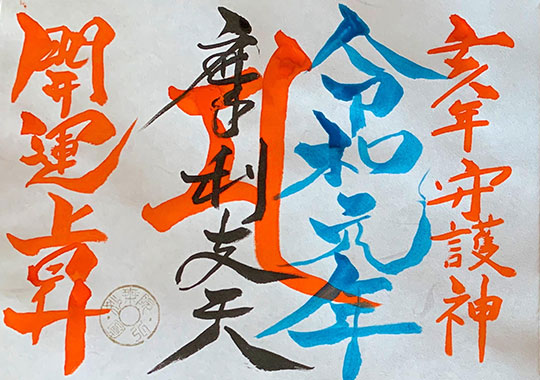 亥年守護神
令和元年
摩利支天
開運上昇